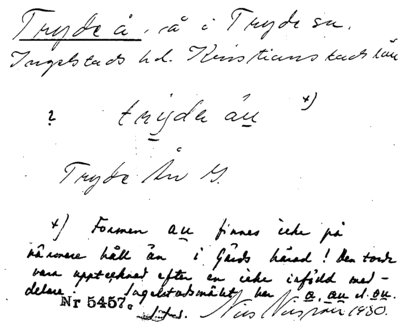 Tryde å, å i Tryde sn.
Ingelstads hd. Kristianstads län
? tryda åu x)
Tryde Ån G.
x) Formen au finnes icke på
närmare håll än i Gärds härad! Den torde
vara upptecknad efter en icke infödd med-
delare. Ingelstadsmålet har a, au el. ou.
Nr 5457. 1930.